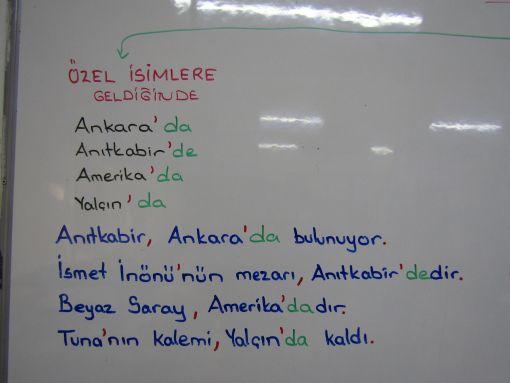 ÖZEL İSİMLERE
GELDİĞİNDE
Ankara'da
Anıtkabir'de
Amerika'da
Yalçın'da
Anıtkabir, Ankara'da bulunuyor.
İsmet İnönü'nün mezarı, Anıtkabir'dedir.
Beyaz Saray, Amerika'dadır.
Tuna'nın kalemi, Yalçın'da kaldı.